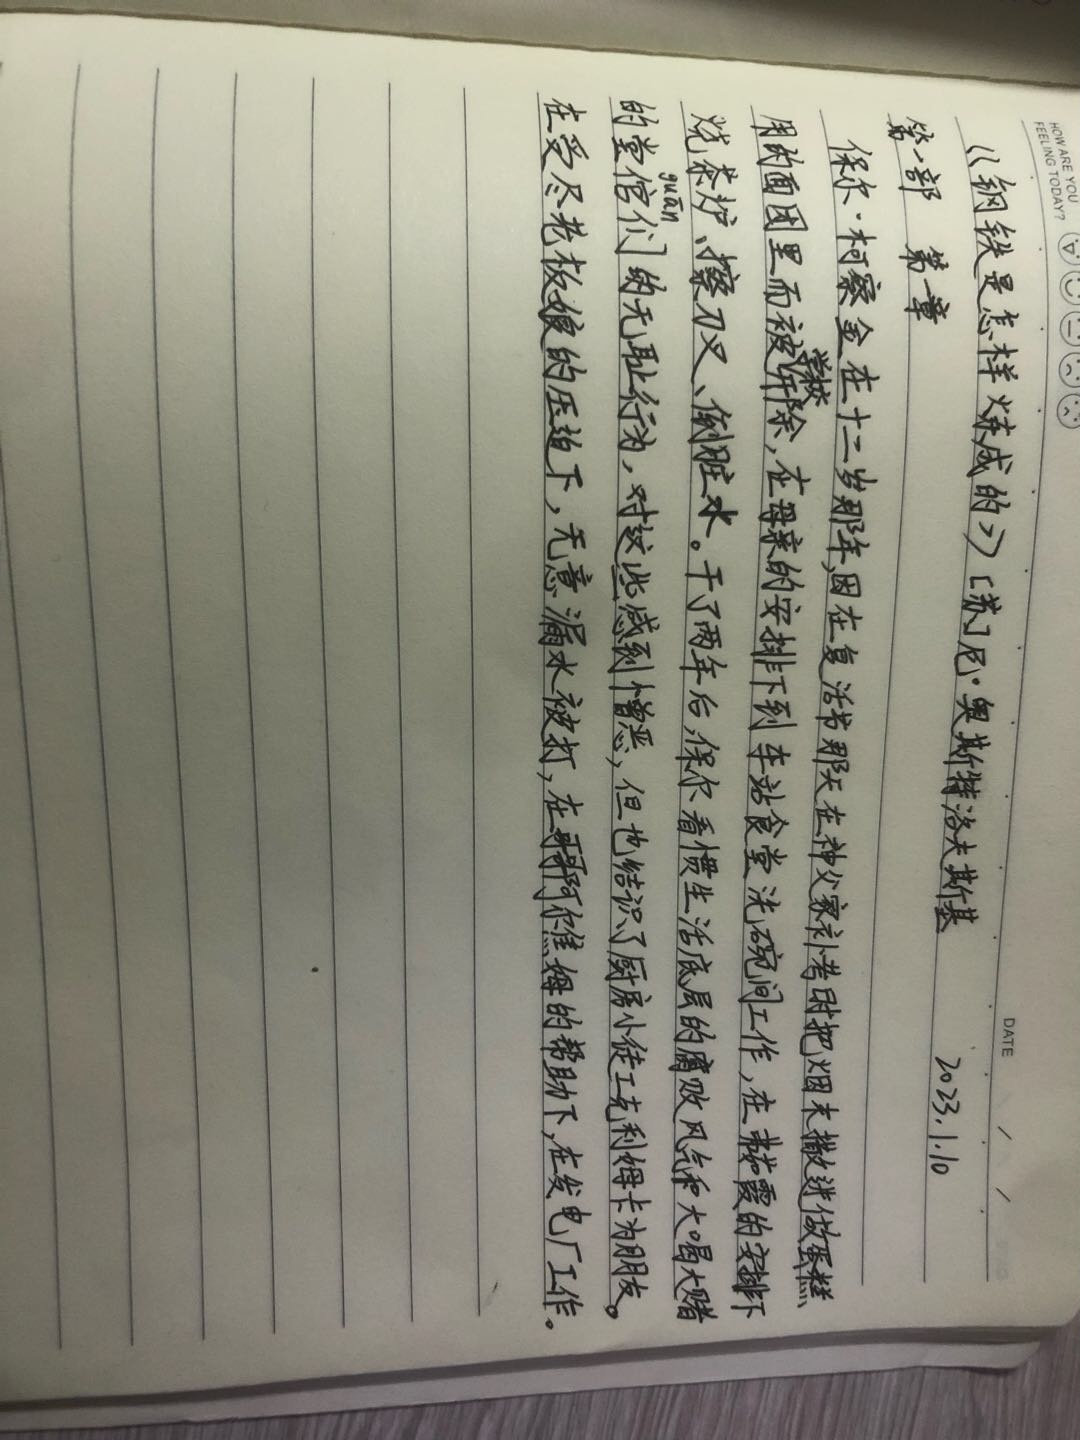 HOW ARE YOU
FEELING TODAY?
DATE / /
《钢铁是怎样炼成的》〔苏〕尼·奥斯特洛夫斯基 2023.1.10
第一部 第一章
保尔·柯察金在十二岁那年,因在复活节那天在神父家补考时把烟末撒进做蛋糕
用的面团里而被学校开除,在母亲的安排下到车站食堂洗碗间工作,在弗茹霞的安排下
烧茶炉、擦刀叉、倒脏水。干了两年后,保尔看惯生活底层的腐败风气和大喝大赌
guān
的堂倌们的无耻行为,对这些感到憎恶,但也结识了厨房小徒工克利姆卡为朋友。
在受尽老板娘的压迫下,无意漏水被打,在哥哥阿尔焦姆的帮助下,在发电厂工作。